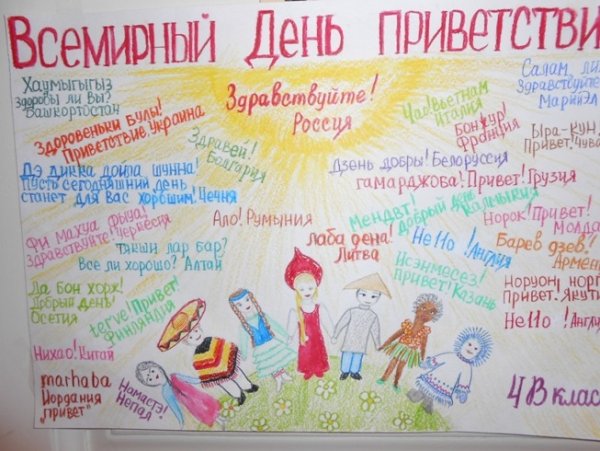 Всемирный День приветстви
Хаумыгыгыз
Здоровы ли Вы?
Башкортостан
Здоровеньки Булы!
Приветствие Украина
Здравствуйте!
Россия
Здравей!
Болгария
Чао! Вьетнам
Италия
Бонжур!
Франция
Салам ли
Здравствуйте
Марий Эл
Ыра-кун,
Привет. Чува
Дзень добры! Белоруссия
гамарджоба! Привет! Грузия
Дэ дикка дойла шунна!
Пусть сегодняшний день
станет для вас хорошим! Чечня
Ало! Румыния
Мендвт!
Добрый день Калмыкия
Норок! Привет!
Молда
Фи махуа фыуа!
Здравствуйте! Черкесия
Тякши лар бар?
Все ли хорошо? Алтай
лаба дена!
Литва
Hello! Англия
Барев дзев!
Армен
Исэнмесез!
привет! Казань
Норуон, норг
Привет. Якути
Ла бон хорж!
Добрый день!
Осетия
terve! Привет!
Финляндия
Hello! Англи
Нихао! Китай
marhaba
Иордания
"привет"
Намастэ!
Непал
4В клас